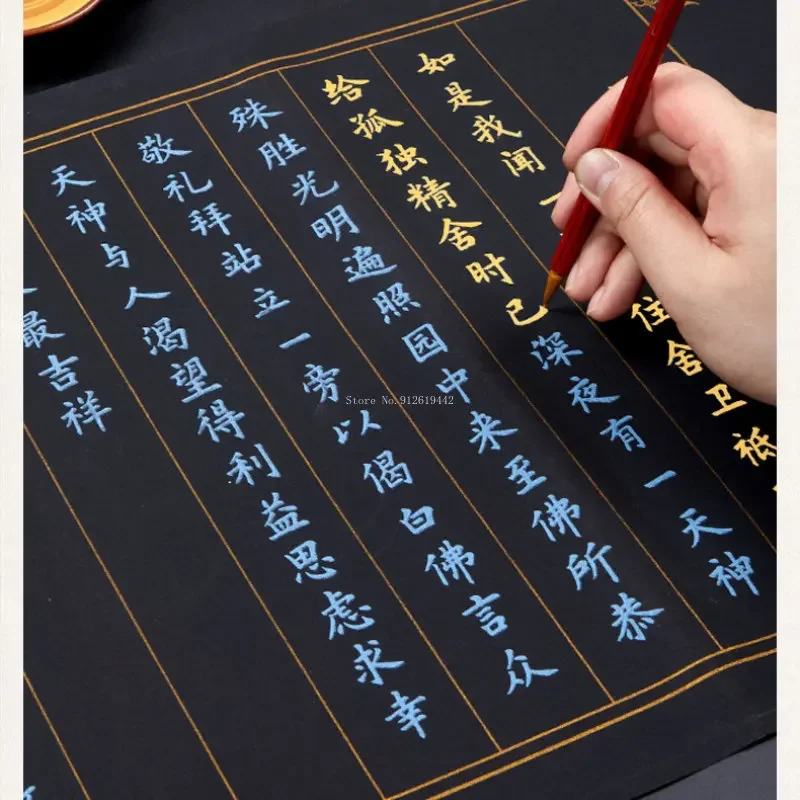 如是我闻一住舍卫祗
给孤独精舍时已深夜有一天神
殊胜光明遍照园中来至佛所恭
敬礼拜站立一旁以偈白佛言众
天神与人渴望得利益思虑求幸
最吉祥
Store No.912619442